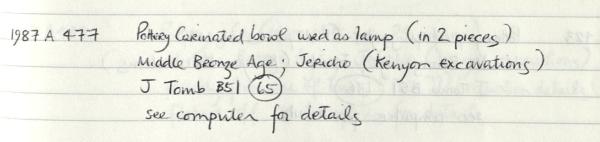 1987 A 477 Pottery Carinated bowl used as lamp (in 2 pieces)
Middle Bronze Age; Jericho (Kenyon excavations)
J Tomb B51 (65)
see computer for details